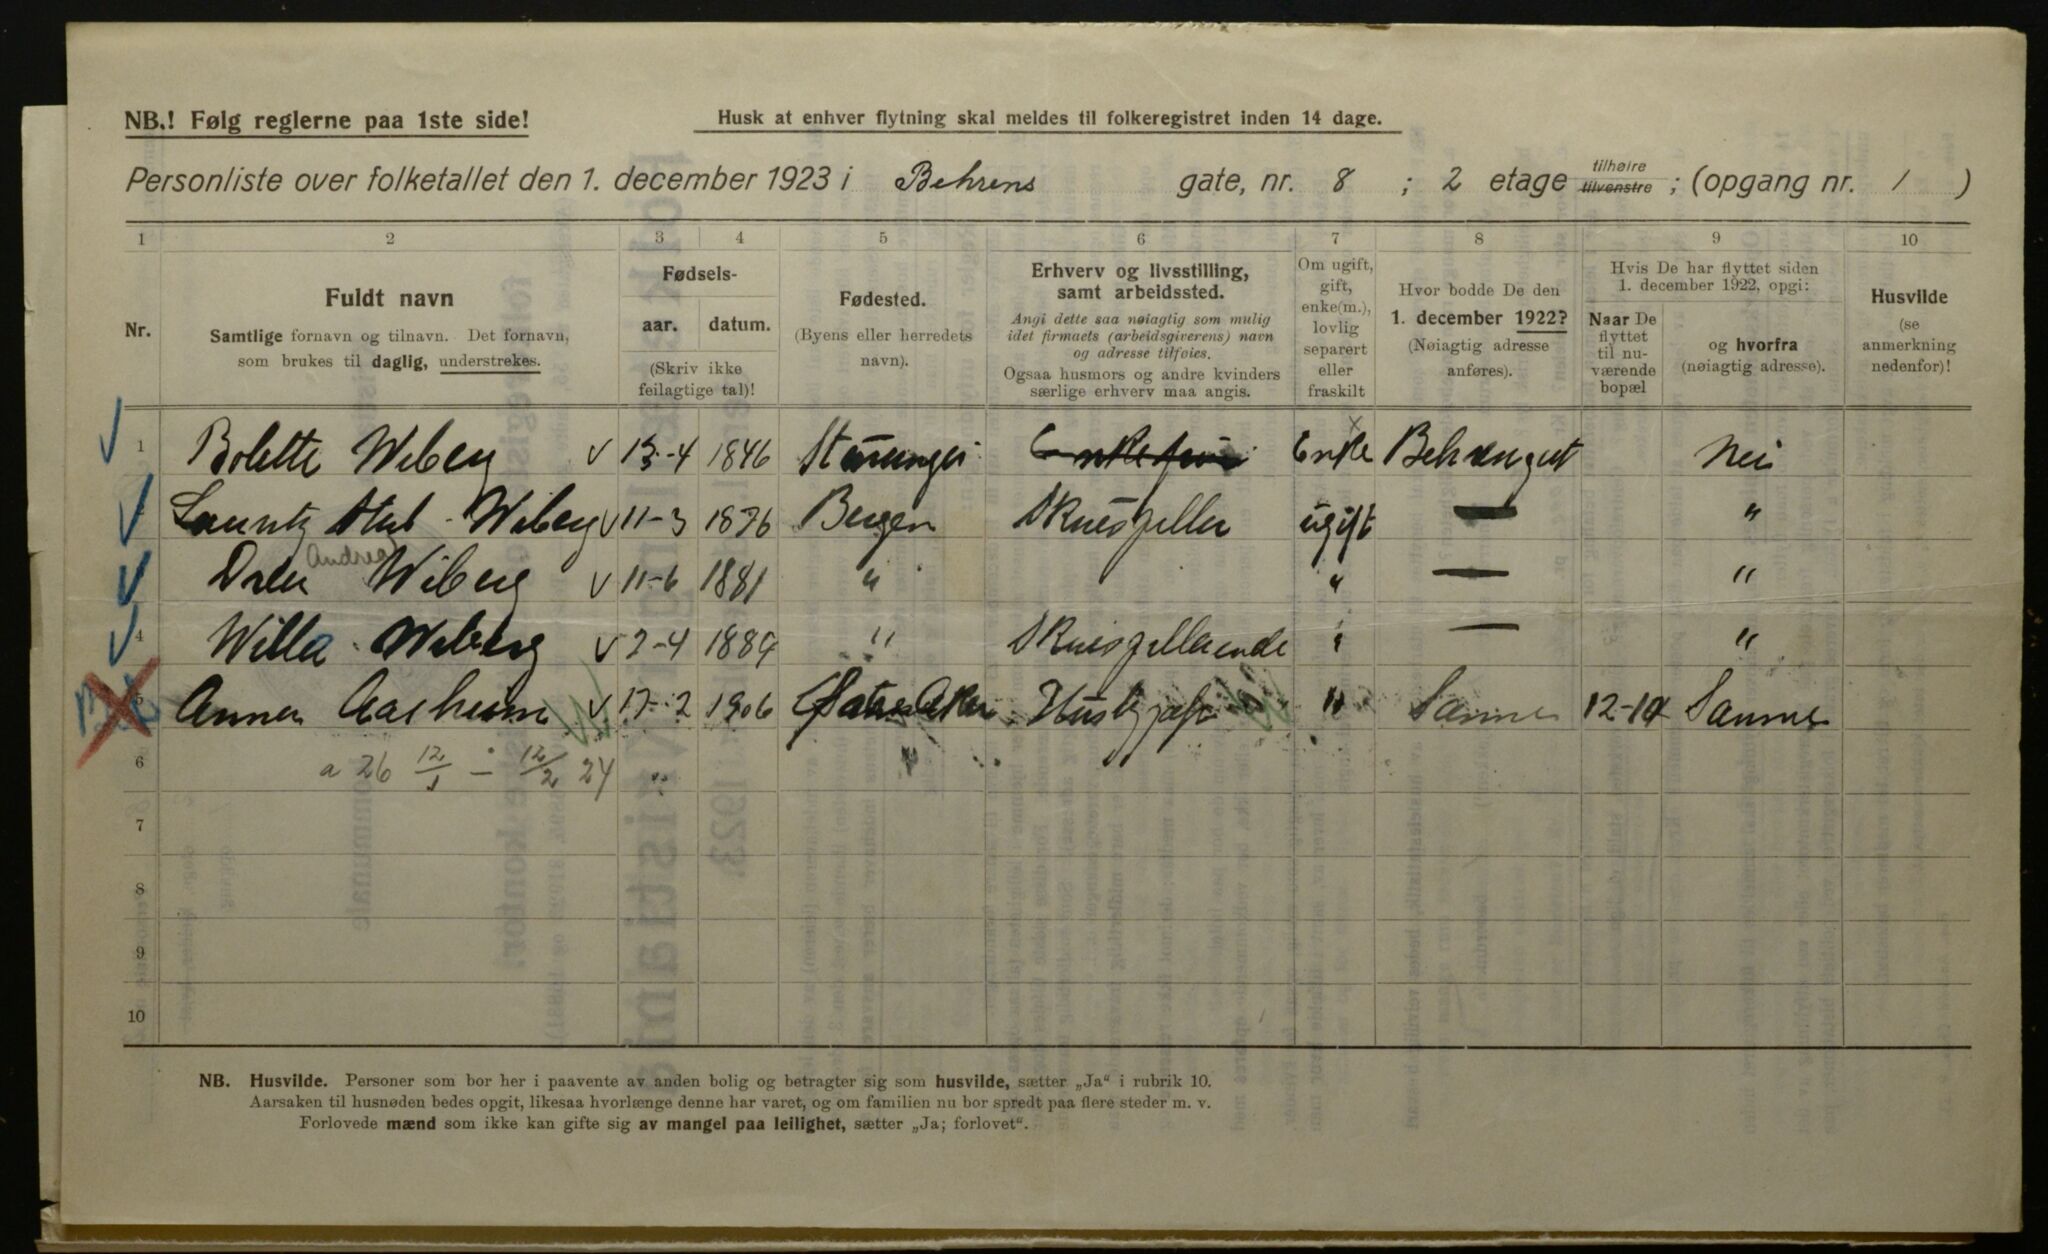 NB.! Følg reglerne paa 1ste side!
Husk at enhver flytning skal meldes til folkeregistret inden 14 dage.
Personliste over folketallet den 1. december 1923 i Behrens gate, nr. 8 ; 2 etage tilhøire tilvenstre ; (opgang nr. 1 )
1 2 3 4 5 6 7 8 9 10
Nr.
Fuldt navn
Samtlige fornavn og tilnavn. Det fornavn,
som brukes til daglig, understrekes.
Fødsels-
aar. datum.
(Skriv ikke
feilagtige tal)!
Fødested.
(Byens eller herredets
navn).
Erhverv og livsstilling,
samt arbeidssted.
Angi dette saa nøiagtig som mulig
idet firmaets (arbeidsgiverens) navn
og adresse tilføies.
Ogsaa husmors og andre kvinders
særlige erhverv maa angis.
Om ugift,
gift,
enke(m.),
lovlig
separert
eller
fraskilt
Hvor bodde De den
1. december 1922?
(Nøiagtig adresse
anføres).
Hvis De har flyttet siden
1. december 1922, opgi:
Naar De
flyttet
til nu-
værende
bopæl
og hvorfra
(nøiagtig adresse).
Husvilde
(se
anmerkning
nedenfor)!
1 Bolette Wiberg 13-4 1846 Stavanger Enkefrue Enke Behrensgat Nei
Lauritz Stub-Wiberg 11-3 1876 Bergen Skuespiller ugift — "
Andrea
Wiberg 11-6 1881 " " — "
4 Willa Wiberg 2-4 1884 " Skuespillerinde " — "
5 Anna Aasheim 17-2 1906 Aker " Sanner 12-10 Sanner
6 a 26 12/1 – 12/2 24
7
8
9
10
NB. Husvilde. Personer som bor her i paavente av anden bolig og betragter sig som husvilde, sætter „Ja“ i rubrik 10.
Aarsaken til husnøden bedes opgit, likesaa hvorlænge denne har varet, og om familien nu bor spredt paa flere steder m. v.
Forlovede mænd som ikke kan gifte sig av mangel paa leilighet, sætter „Ja; forlovet“.